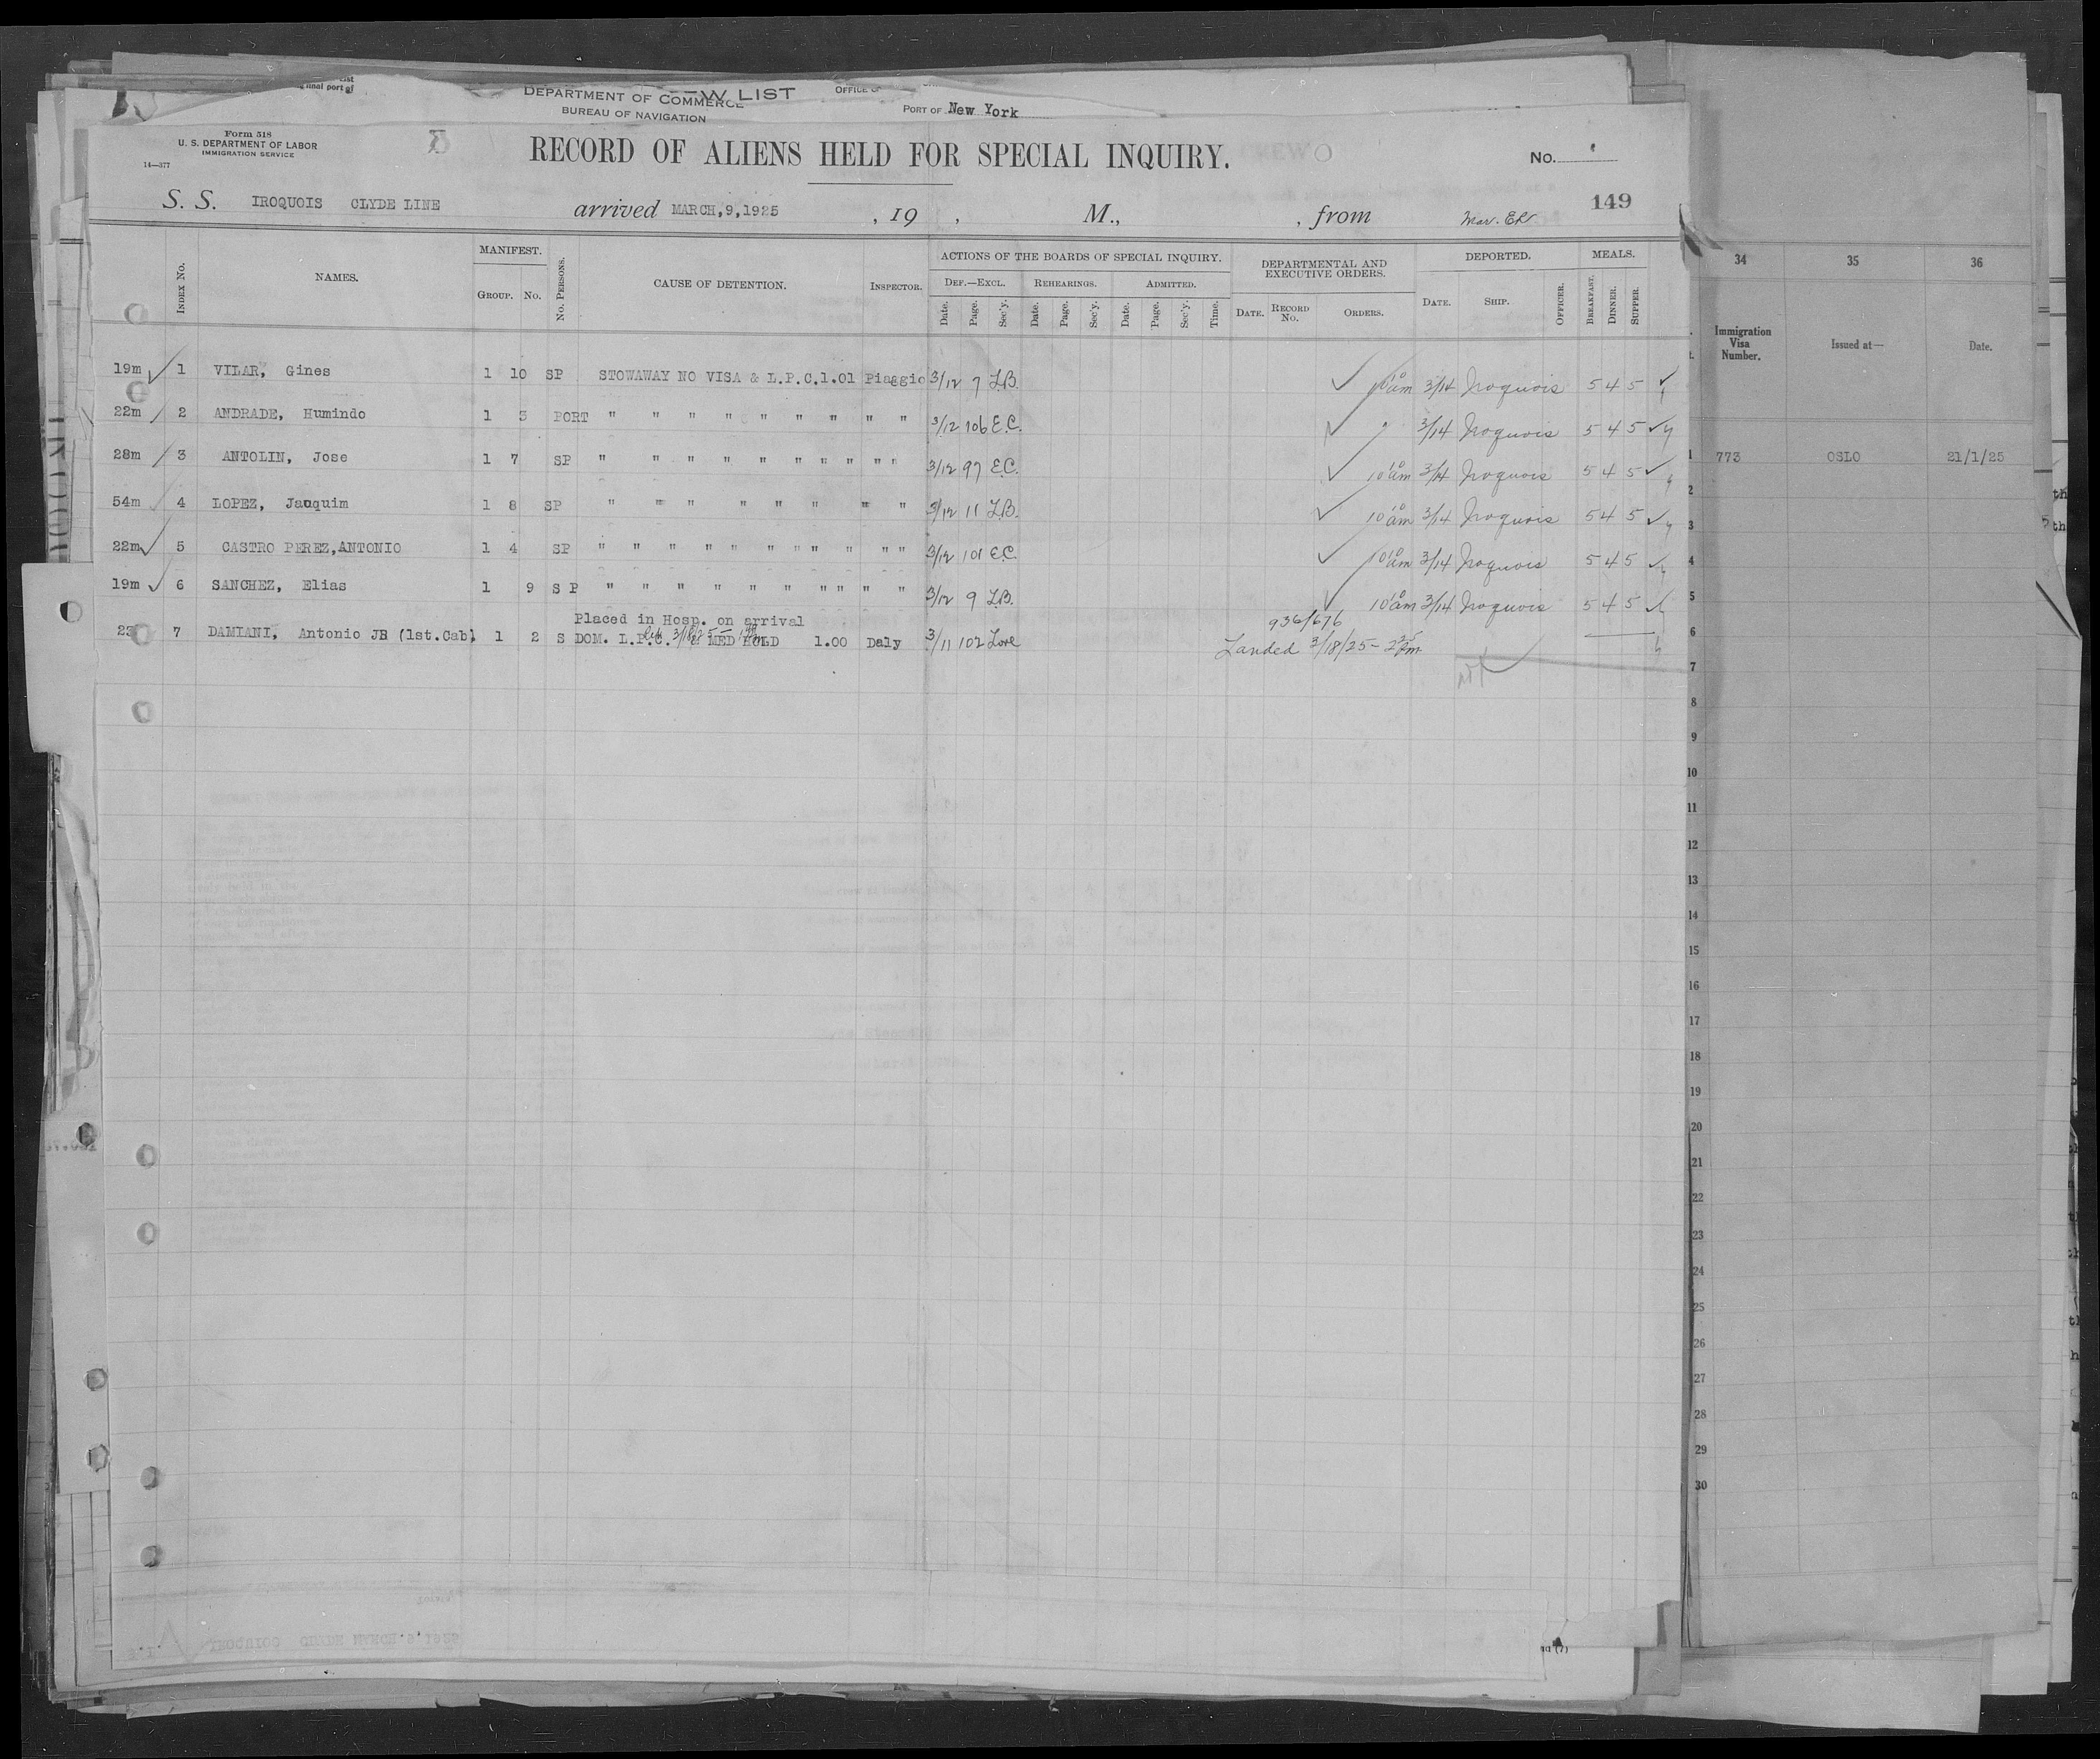 final port of
W LIST
DEPARTMENT OF COMMERCE
BUREAU OF NAVIGATION
PORT OF New York
Form 518
U. S. DEPARTMENT OF LABOR
IMMIGRATION SERVICE
14—377
RECORD OF ALIENS HELD FOR SPECIAL INQUIRY.
No.
149
S. S. IROQUOIS CLYDE LINE arrived MARCH,9,1925 , 19 , M., , from
INDEX No. NAMES. MANIFEST. GROUP. No. No. PERSONS. CAUSE OF DETENTION. INSPECTOR.
ACTIONS OF THE BOARDS OF SPECIAL INQUIRY.
DEF.—EXCL. REHEARINGS. ADMITTED.
Date. Page. Sec'y. Date. Page. Sec'y. Date. Page. Sec'y. Time.
DEPARTMENTAL AND EXECUTIVE ORDERS.
DATE. RECORD No. ORDERS.
DEPORTED.
DATE. SHIP. OFFICER.
MEALS.
BREAKFAST. DINNER. SUPPER.
19m 1 VILAR, Gines 1 10 SP STOWAWAY NO VISA & L.P.C.1.01 Piaggio 3/12 7 L.B. 10 10 am 3/14 Iroquois 5 4 5
22m 2 ANDRADE, Humindo 1 3 PORT " " " " " " " " " 3/12 106 E.C. " 3/14 Iroquois 5 4 5
28m 3 ANTOLIN, Jose 1 7 SP " " " " " " " " " " 3/12 97 E.C. 10 10 am 3/14 Iroquois 5 4 5
54m 4 LOPEZ, Jaoquim 1 8 SP " " " " " " " " 3/12 11 L.B. 10 10 am 3/14 Iroquois 5 4 5
22m 5 CASTRO PEREZ,ANTONIO 1 4 SP " " " " " " " " " " " 3/12 101 E.C. 10 10 am 3/14 Iroquois 5 4 5
19m 6 SANCHEZ, Elias 1 9 S P " " " " " " " " " " 3/12 9 L.B. 10 10 am 3/14 Iroquois 5 4 5
Placed in Hosp. on arrival
936/676
23 7 DAMIANI, Antonio JR (1st.Cab) 1 2 S DOM. L.P.C. & MED HOLD 1.00 Daly 3/11 102 Love Landed 3/18/25 - 2 25 pm
34 35 36
Immigration Visa Number. Issued at— Date.
1 773 OSLO 21/1/25
2
3
4
5
6
7
8
9
10
11
12
13
14
15
16
17
18
19
20
21
22
23
24
25
26
27
28
29
30